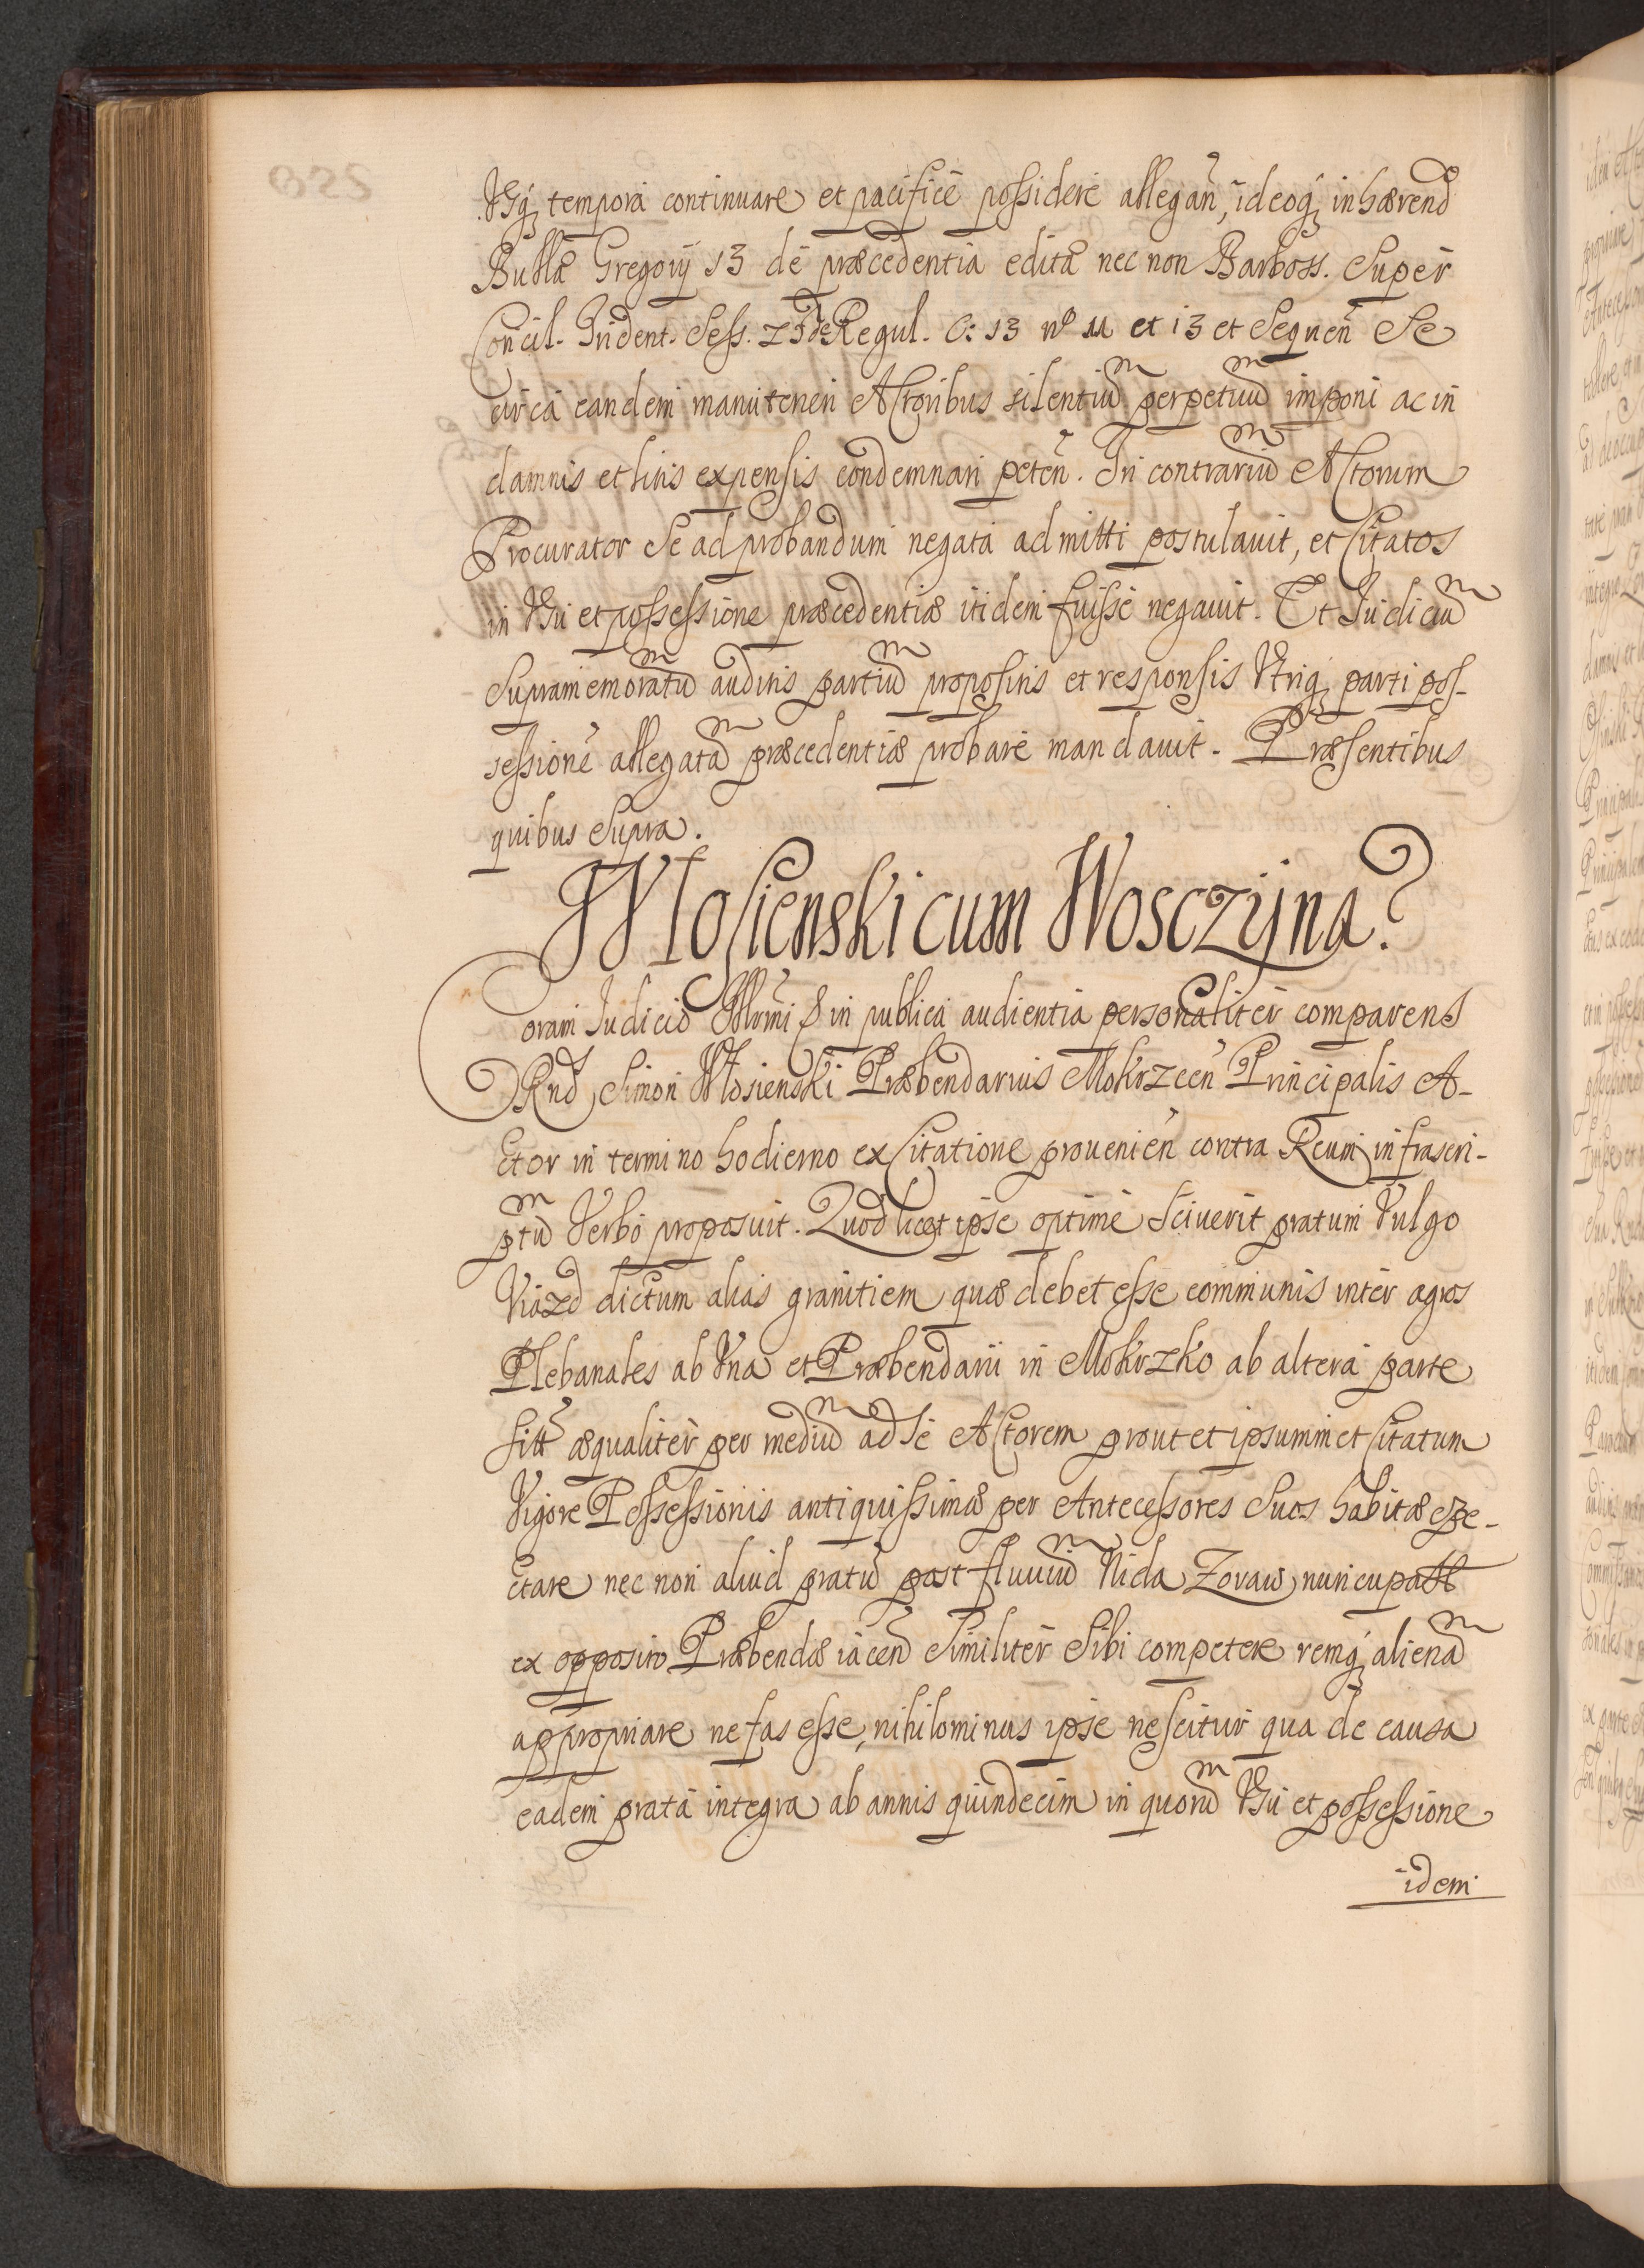 Usq tempora continuare et pacifice possidere allegan, ideoq inhærend
Bulla Gregorij 13 de præcedentia edita nec non Barboss. Super
Concil. Trident. Sess. 25 de Regul. C: 13 no 11 et 13 et Sequen Se
circa eandem manuteneri Actoribus silentium perpetuum imponi ac in
damnis et litis expensis condemnari peten. In contrarium Actorum
Procurator Se ad probandum negata admitti postulavit, et Citatos
in Usu et possessione præcedentiæ itidem fuisse negavit. Et Iudicium
Supramemoratum auditis partium propositis et responsis Utriq parti pos-
sessione allegatam præcedentiæ probare mandavit. Præsentibus
quibus Supra.
Wlosienski cum Wosczijna.
Coram Iudicio Illrmi & in publica audientia personaliter comparens
Rnd Simon Wlosienski Præbendarius Mokrzcen Principalis A-
ctor in termino hodierno ex Citatione provenien contra Reum infrascri-
ptum Verbo proposuit. Quod licet ipse optime Sciuerit pratum Vulgo
Viazd dictum alias granitiem quæ debet esse communis inter agros
Plebanales ab Una et Præbendarii in Mokrzko ab altera parte
sitt æqualiter per medium ad Se Actorem prout et ipsummet Citatum
Vigore Possessionis antiquissimæ per Antecessores Suos habitæ spe-
ctare nec non aliud pratum post fluuium Nida Zoraw nuncupatt
ex opposito Præbendæ iacen Similiter Sibi competere remq alienam
appropriare nefas esse, nihilominus ipse nescitur qua de causa
eadem prata integra ab annis quindecim in quorum Usu et possessione
idem